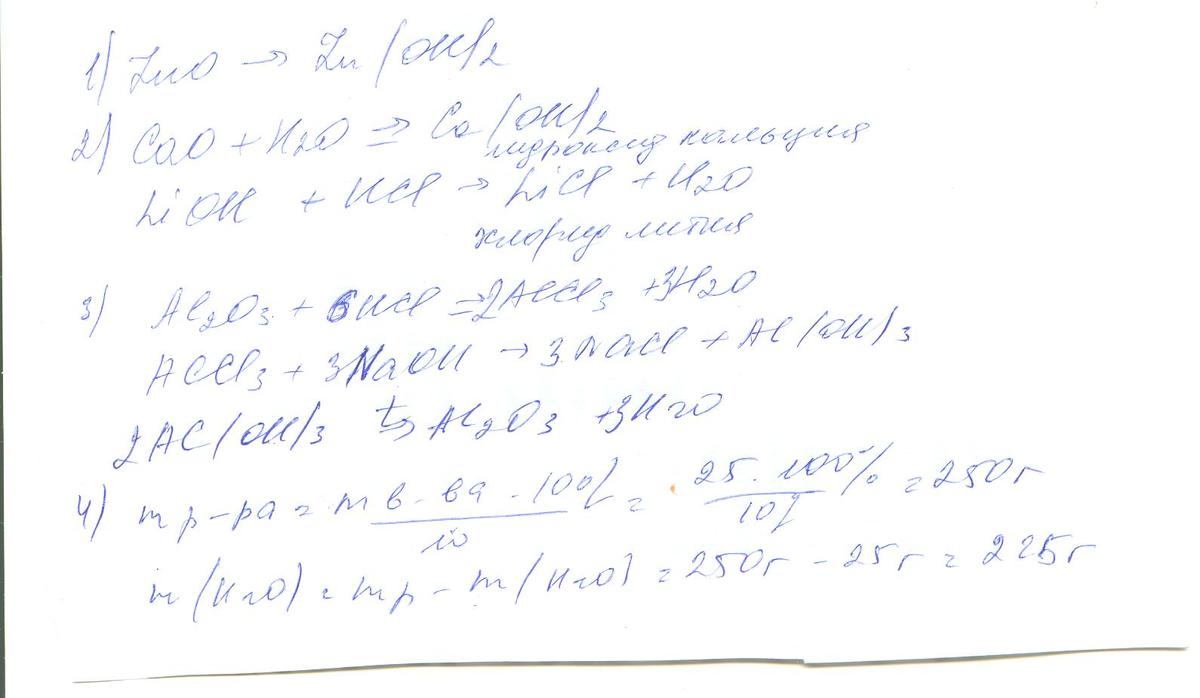 1) ZnO → Zn(OH)2
2) CaO + H2O ⇒ Ca(OH)2
гидроксид кальция
LiOH + HCl → LiCl + H2O
хлорид лития
3) Al2O3 + 6HCl ⇒ 2AlCl3 + 3H2O
AlCl3 + 3NaOH → 3NaCl + Al(OH)3
2Al(OH)3 t→ Al2O3 + 3H2O
4) m р-ра = m в-ва · 100% / w = 25 · 100% / 10% = 250г
m(H2O) = mр - m(H2O) = 250г - 25г = 225г